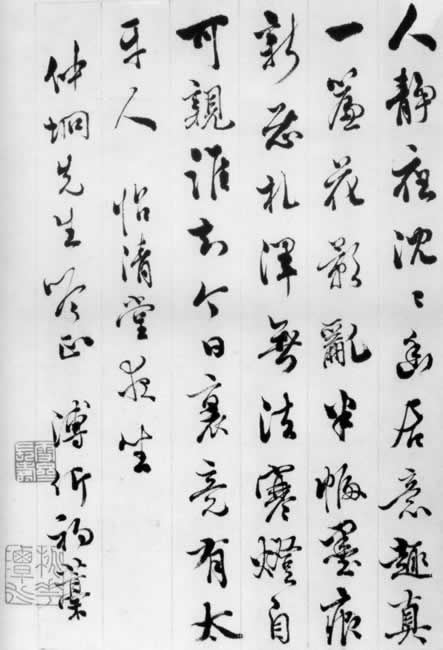 人靜夜沈々幽居意趣真
一簾花影亂半幅墨痕
新惡札渾無法寒燈自
可親誰知今日裏竟有太
平人 怡清堂夜坐
仲坰先生吟正 溥伒初藁